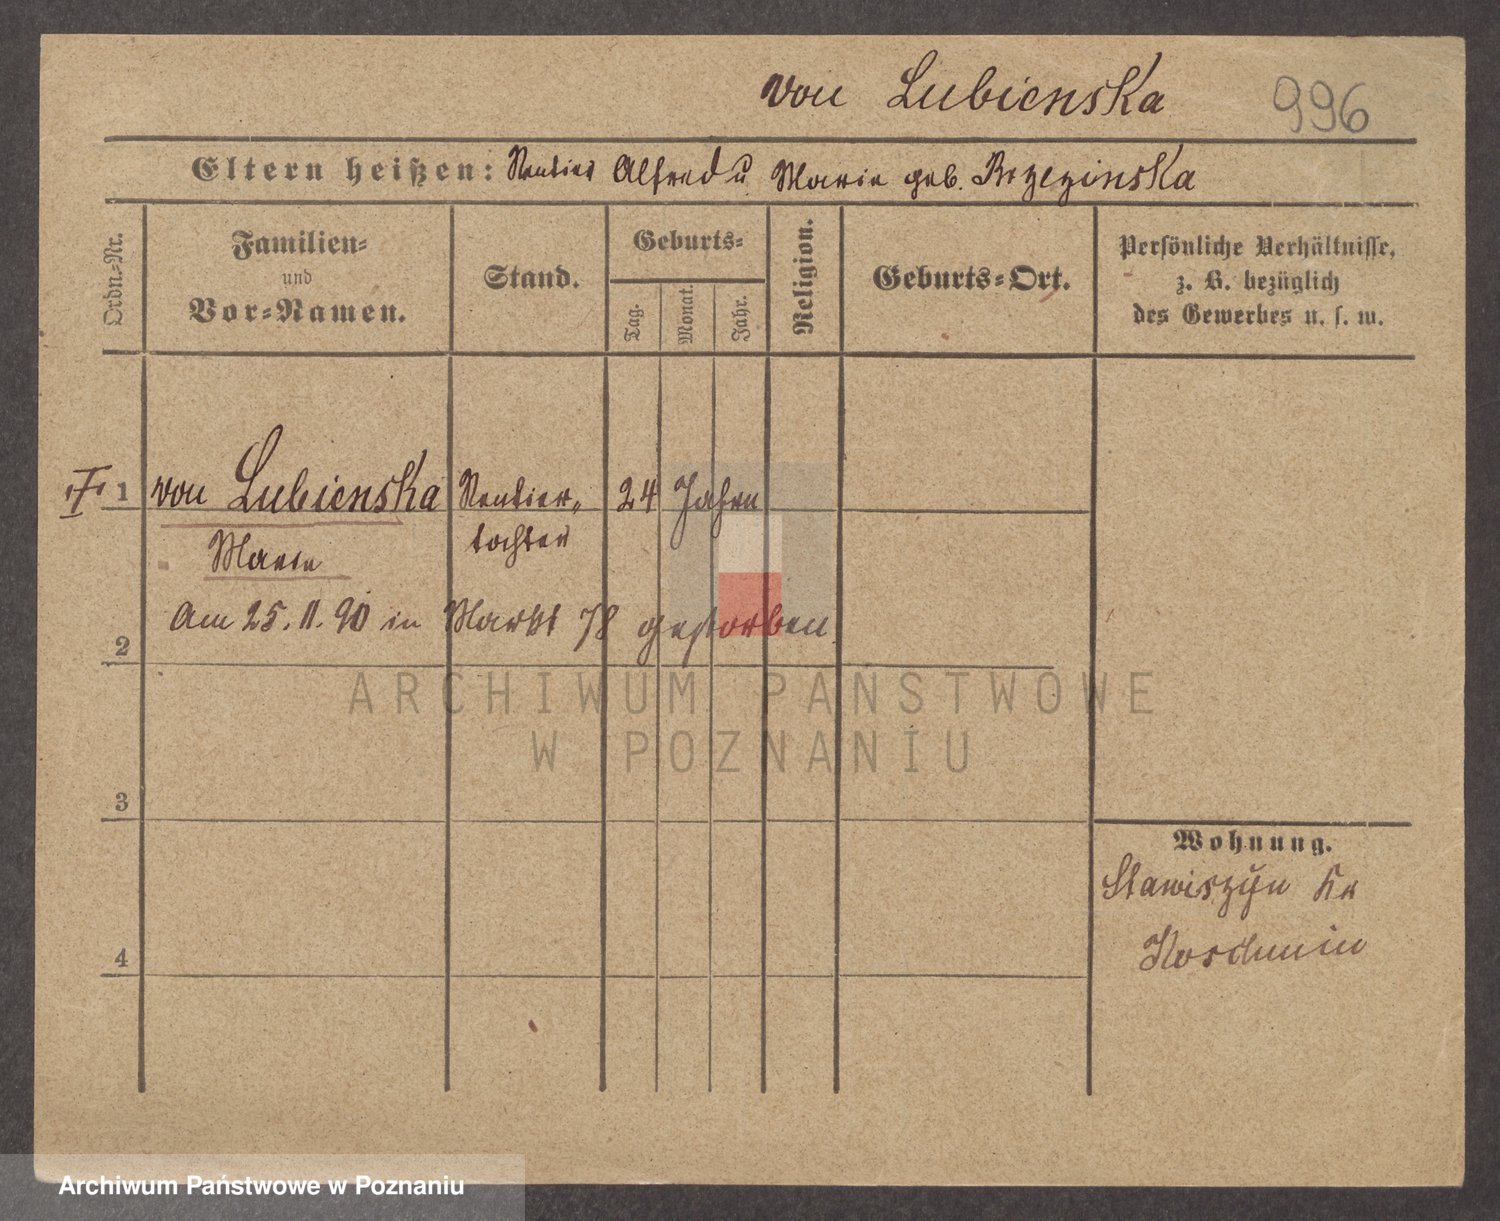 von Lubienska 996
Eltern heißen: Rentier Alfred u Marie geb. Brzezinska
Ordn.-Nr.
Familien-
und
Vor-Namen.
Stand.
Geburts-
Tag.
Monat.
Jahr.
Religion.
Geburts-Ort.
Persönliche Verhältnisse,
z. B. bezüglich
des Gewerbes u. s. w.
1 von Lubienska Rentier- 24 Jahre
Marie tochter
Am 25. 11. 90 in Markt 78 gestorben
2
ARCHIWUM PAŃSTWOWE
W POZNANIU
3
Wohnung.
Stawiszyn Kr
4
Archiwum Państwowe w Poznaniu